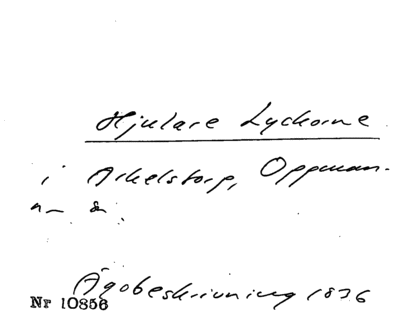 Hjulare Lyckorne
i Arkelstorp, Oppman-
na s:n.
Ägobeskrivning 1836
Nr 10856